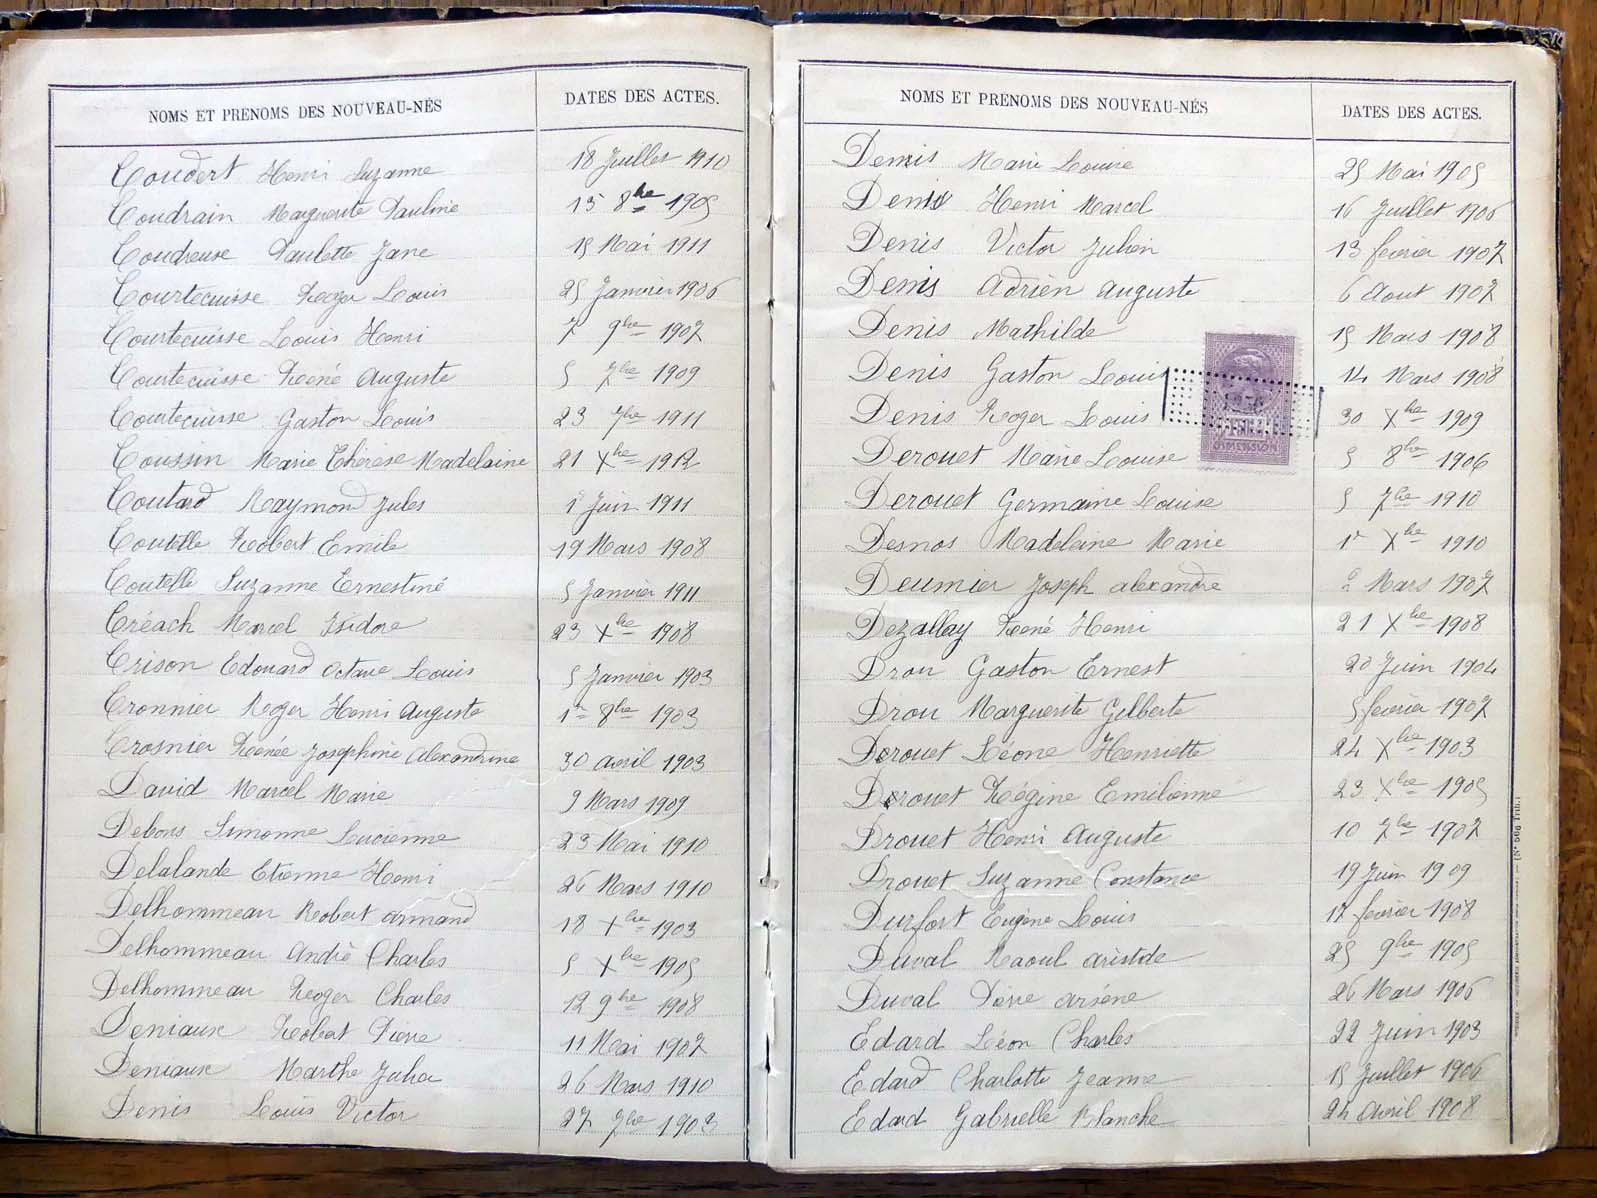 NOMS ET PRENOMS DES NOUVEAU-NÉS DATES DES ACTES.
Coudert Henri Suzanne 18 Juillet 1910
Coudrain Marguerite Pauline 15 8bre 1905
Coudreuse Paulette Jane 15 Mai 1911
Courtecuisse Roger Louis 25 Janvier 1906
Courtecuisse Louis Henri 7 9bre 1907
Courtecuisse René Auguste 5 7bre 1909
Courtecuisse Gaston Louis 23 7bre 1911
Coussin Marie Thérèse Madelaine 21 Xbre 1912
Coutard Raymond Jules 1r Juin 1911
Coutelle Robert Emile 19 Mars 1908
Coutelle Suzanne Ernestine 5 Janvier 1911
Créach Marcel Isidore 23 Xbre 1908
Crison Edouard Octave Louis 5 Janvier 1903
Cronnier Roger Henri Auguste 1r 8bre 1903
Crosnier Renée Joséphine Alexandrine 30 avril 1903
David Marcel Marie 9 Mars 1909
Debous Simonne Lucienne 23 Mai 1910
Delalande Etienne Henri 26 Mars 1910
Delhommeau Robert Armand 18 Xbre 1903
Delhommeau André Charles 5 Xbre 1905
Delhommeau Roger Charles 12 9bre 1908
Deniaux Robert Pierre 11 Mai 1907
Deniaux Marthe Julia 26 Mars 1910
Denis Louis Victor 27 7bre 1903
NOMS ET PRENOMS DES NOUVEAU-NÉS DATES DES ACTES.
Denis Marie Louise 25 Mai 1905
Denis Henri Marcel 16 Juillet 1906
Denis Victor Julien 13 février 1907
Denis Adrien Auguste 6 Aout 1907
Denis Mathilde 15 Mars 1908
Denis Gaston Louis 14 Mars 1908
Denis Roger Louis 30 Xbre 1909
Derouet Marie Louise 5 8bre 1906
DIMENSION
Derouet Germaine Louise 5 7bre 1910
Desnos Madeleine Marie 1r Xbre 1910
Deumier Joseph Alexandre Mars 1907
Dezallay René Henri 21 Xbre 1908
Drou Gaston Ernest 20 Juin 1904
Drou Marguerite Gilberte 5 février 1907
Derouet Léone Henriette 24 Xbre 1903
Derouet Régine Emilienne 23 Xbre 1905
Drouet Henri Auguste 10 7bre 1907
Drouet Suzanne Constance 19 Juin 1909
Durfort Eugène Louis 12 février 1908
Duval Raoul Aristide 25 9bre 1905
Duval Pierre Arsène 26 Mars 1906
Edard Léon Charles 22 Juin 1903
Edard Charlotte Jeanne 15 Juillet 1906
Edard Gabrielle Blanche 24 Avril 1908